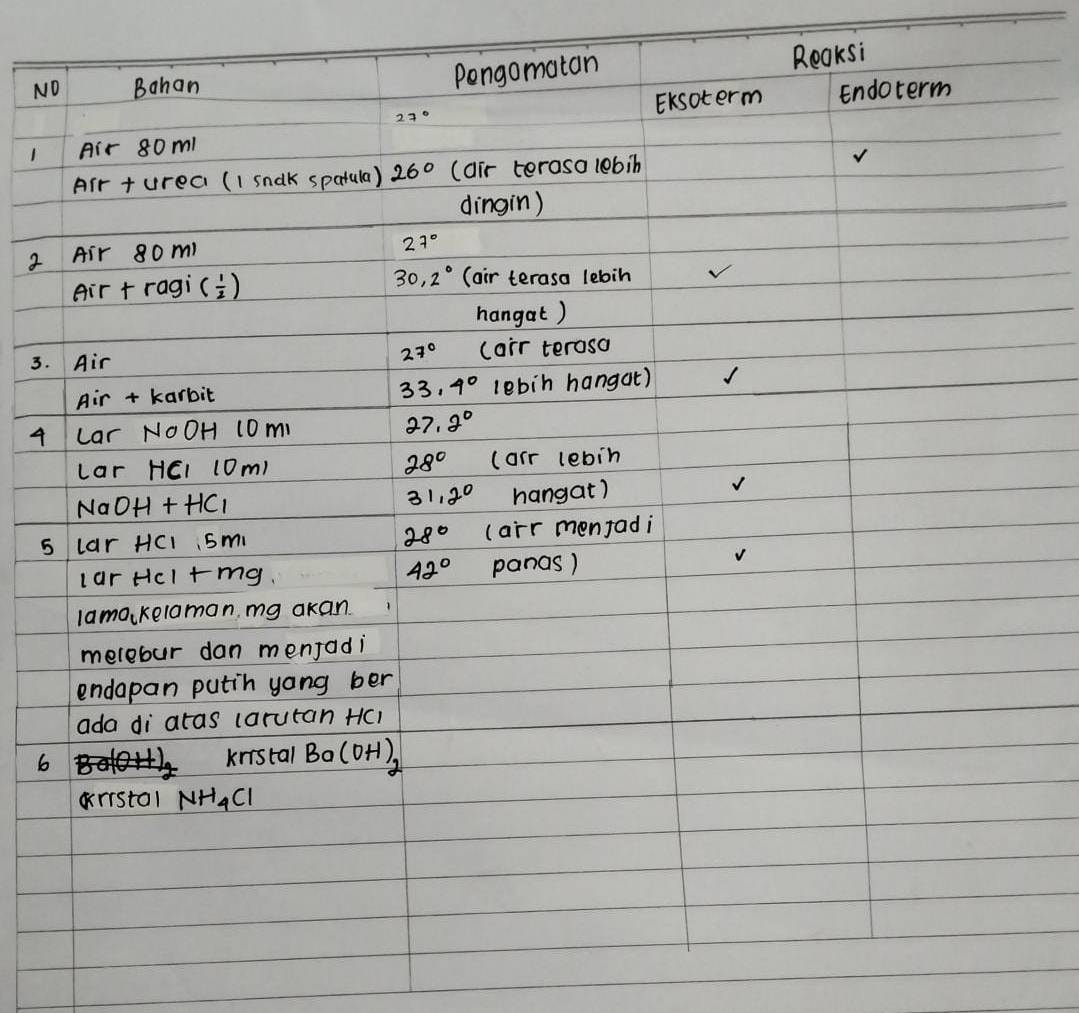 NO Bahan Pengamatan Reaksi
Eksoterm Endoterm
27°
1 Air 80 ml
Air + urea (1 sndk spatula) 26° (air terasa lebih ✓
dingin)
2 Air 80 ml 27°
Air + ragi (½) 30,2° (air terasa lebih ✓
hangat)
3. Air 27° (air terasa
Air + karbit 33,4° lebih hangat) ✓
4 Lar NaOH 10 ml 27,2°
Lar HCl 10 ml 28° (air lebih
NaOH + HCl 31,2° hangat) ✓
5 lar HCl 15 ml 28° (air menjadi
lar HCl + mg. 42° panas) ✓
lama kelaman, mg akan
melebur dan menjadi
endapan putih yang ber
ada di atas larutan HCl
6 Ba(OH)₂ kristal Ba(OH)₂
kristal NH₄Cl